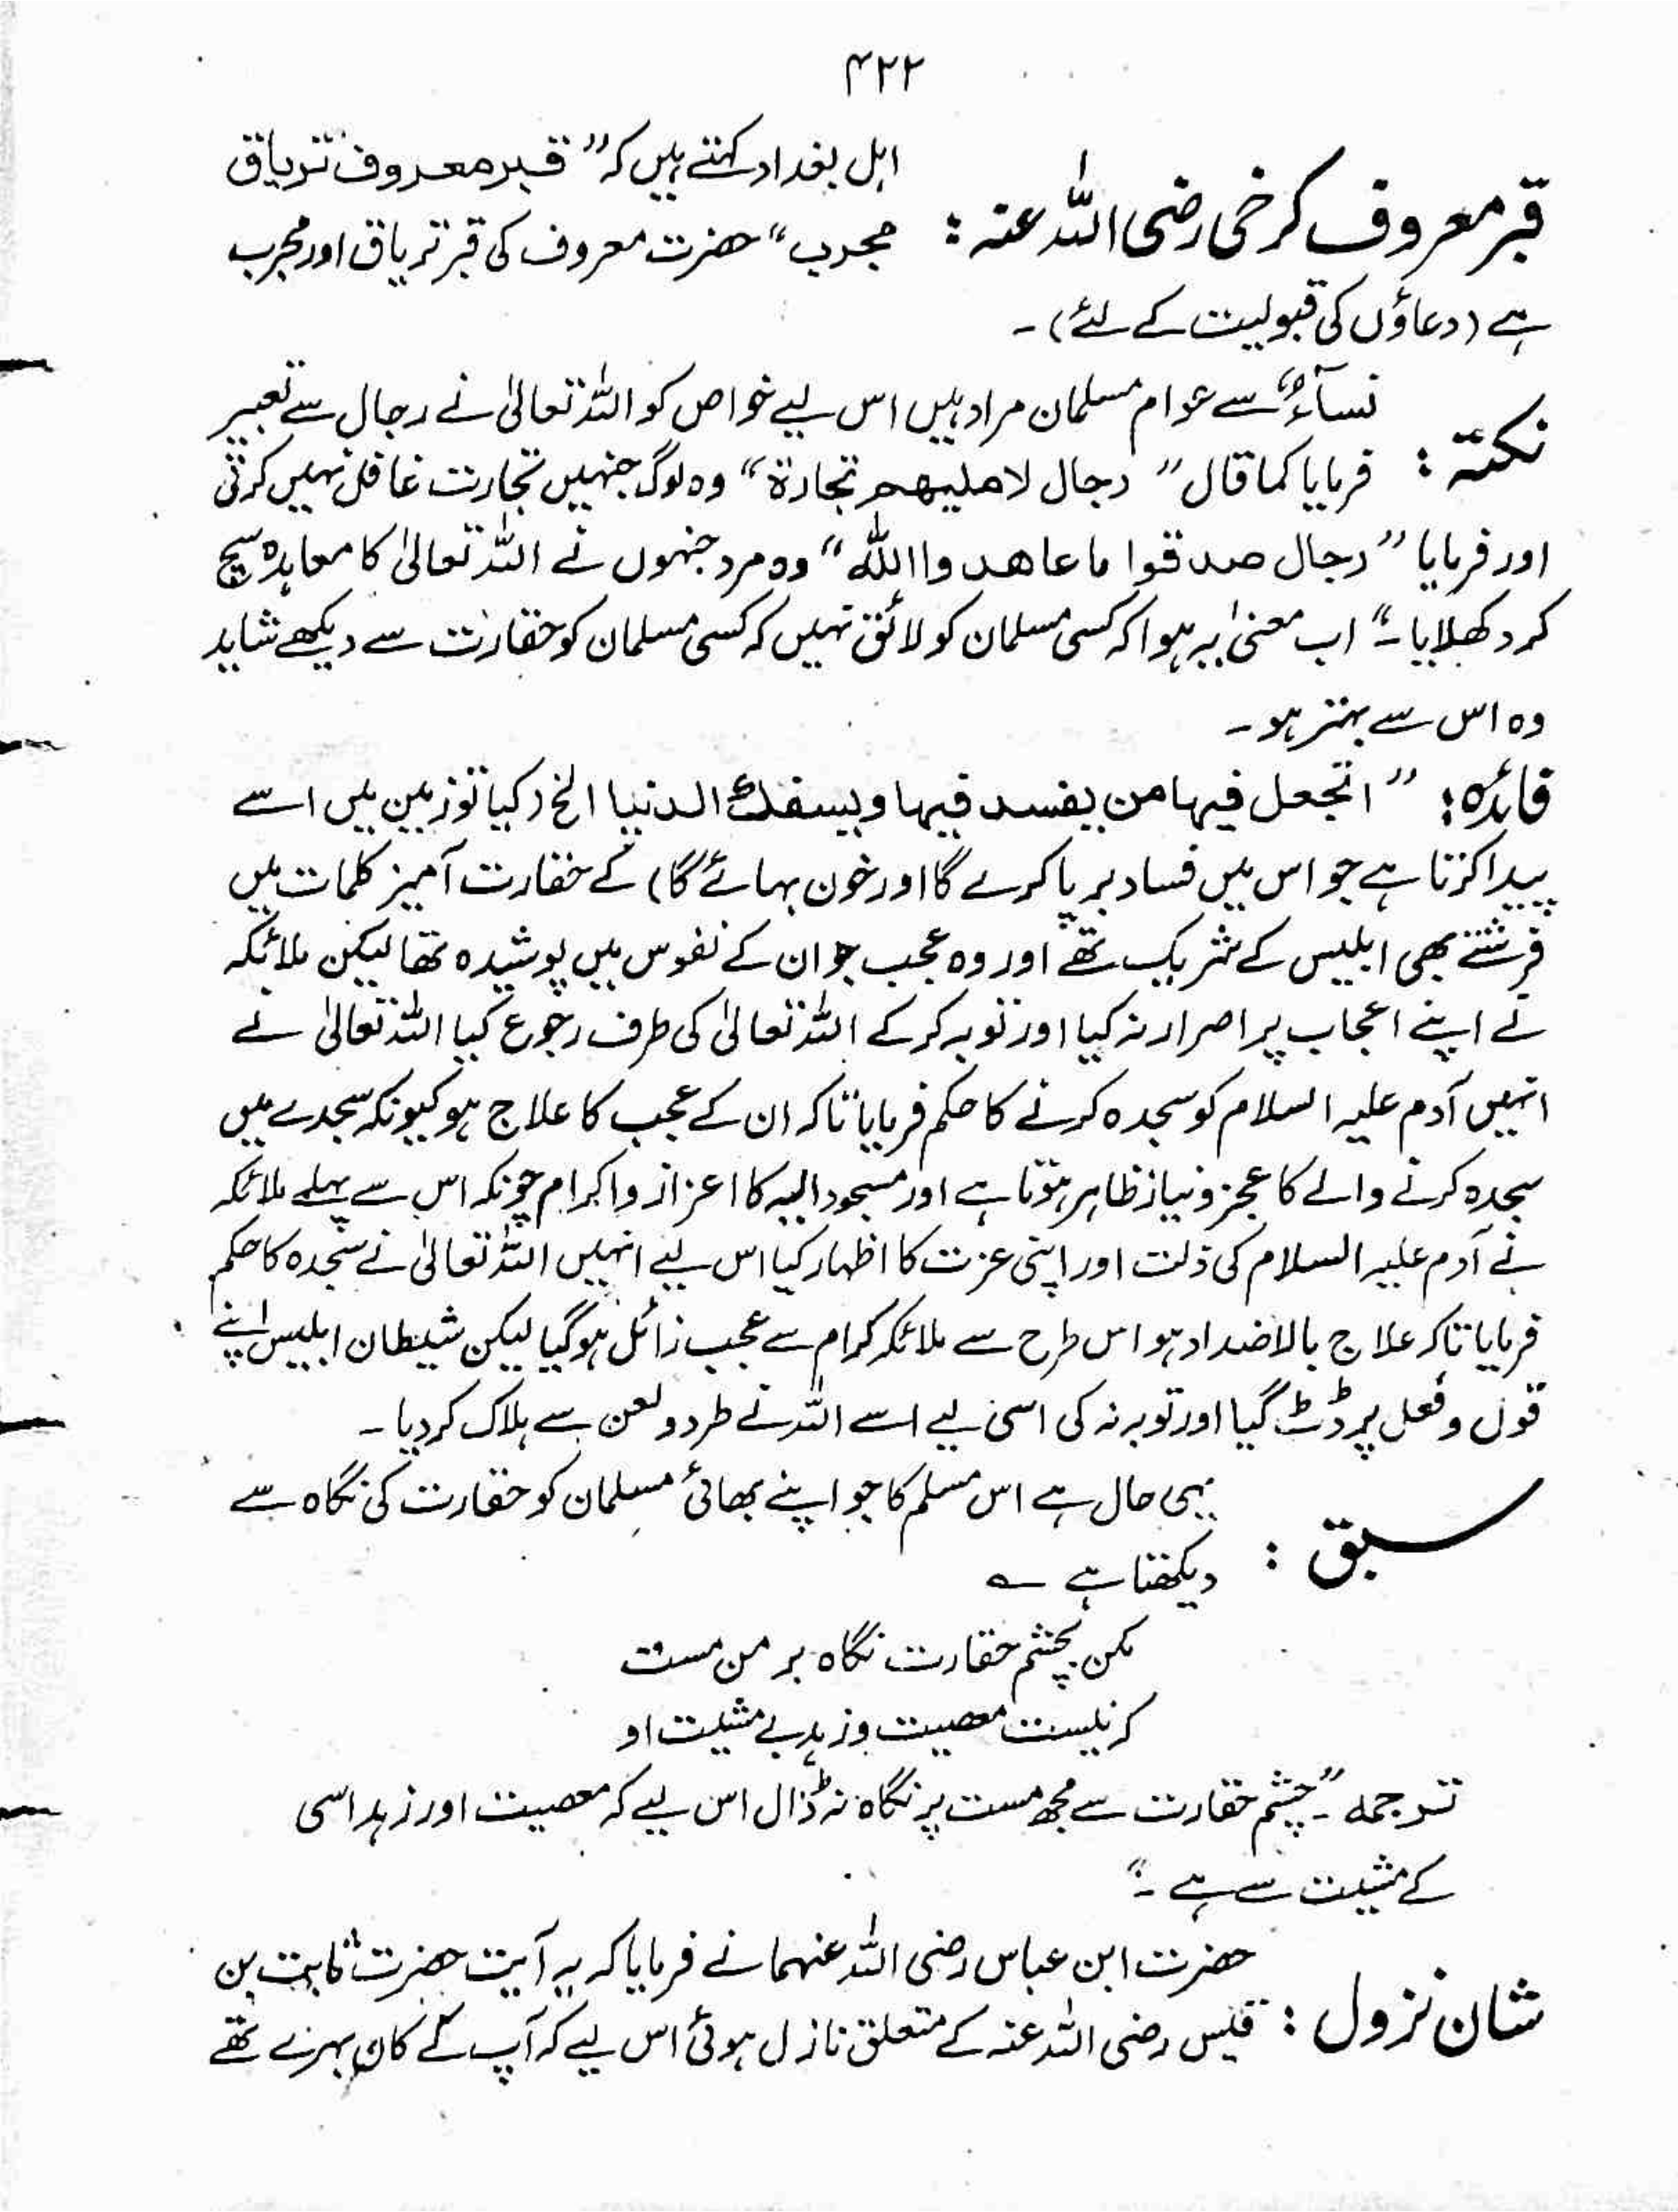 ۴۲۲
قبر معروف کرخی رضی اللہ عنہ : اہل بغداد کہتے ہیں کہ ” قبر معروف تریاق
مجرب “ حضرت معروف کی قبر تریاق اور مجرب
ہے (دعاؤں کی قبولیت کے لئے) ۔
نکتہ : نسآءٌ سے عوام مسلمان مراد ہیں اس لیے خواص کو اللہ تعالیٰ نے رجال سے تعبیر
فرمایا کما قال ” رجال لا تلہیھم تجارۃ “ وہ لوگ جنہیں تجارت غافل نہیں کرتی
اور فرمایا ” رجال صدقوا ما عاھدوا اللہ “ وہ مرد جنہوں نے اللہ تعالیٰ کا معاہدہ سچ
کر دکھلایا ۔“ اب معنیٰ یہ ہوا کہ کسی مسلمان کو لائق نہیں کہ کسی مسلمان کو حقارت سے دیکھے شاید
وہ اس سے بہتر ہو ۔
فائدہ : ” اتجعل فیہا من یفسد فیہا ویسفک الدنیا الخ (کیا تو زمین میں اسے
پیدا کرتا ہے جو اس میں فساد برپا کرے گا اور خون بہائے گا) کے حقارت آمیز کلمات میں
فرشتے بھی ابلیس کے شریک تھے اور وہ عجب جو ان کے نفوس میں پوشیدہ تھا لیکن ملائکہ
نے اپنے اعجاب پر اصرار نہ کیا اور توبہ کر کے اللہ تعالیٰ کی طرف رجوع کیا اللہ تعالیٰ نے
انہیں آدم علیہ السلام کو سجدہ کرنے کا حکم فرمایا تاکہ ان کے عجب کا علاج ہو کیونکہ سجدے میں
سجدہ کرنے والے کا عجز و نیاز ظاہر ہوتا ہے اور مسجود الیہ کا اعزاز و اکرام چونکہ اس سے پہلے ملائکہ
نے آدم علیہ السلام کی ذلت اور اپنی عزت کا اظہار کیا اس لیے انہیں اللہ تعالیٰ نے سجدہ کا حکم
فرمایا تاکہ علاج بالاضداد ہو اس طرح سے ملائکہ کرام سے عجب زائل ہو گیا لیکن شیطان ابلیس اپنے
قول و فعل پر ڈٹ گیا اور توبہ نہ کی اسی لیے اسے اللہ نے طرد و لعن سے ہلاک کر دیا ۔
سبق : یہی حال ہے اس مسلم کا جو اپنے بھائی مسلمان کو حقارت کی نگاہ سے
دیکھتا ہے ؎
مکن بچشم حقارت نگاہ بر من مست
کہ نیست معصیت و زہد بے مشیت او
ترجمہ ۔” چشم حقارت سے مجھ مست پر نگاہ نہ ڈال اس لیے کہ معصیت اور زہد اسی
کے مشیت سے ہے ۔“
شان نزول : حضرت ابن عباس رضی اللہ عنہما نے فرمایا کہ یہ آیت حضرت ثابت بن
قیس رضی اللہ عنہ کے متعلق نازل ہوئی اس لیے کہ آپ کے کان بہرے تھے